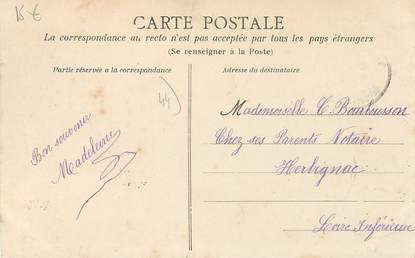 15 €
CARTE POSTALE
La correspondance au recto n'est pas acceptée par tous les pays étrangers
(Se renseigner à la Poste)
Partie réservée a la correspondance
Adresse du destinataire
44
Bon souvenir
Madeleine
Mademoiselle C.
Chez ses Parents Notaire
Herbignac
Loire Inférieure